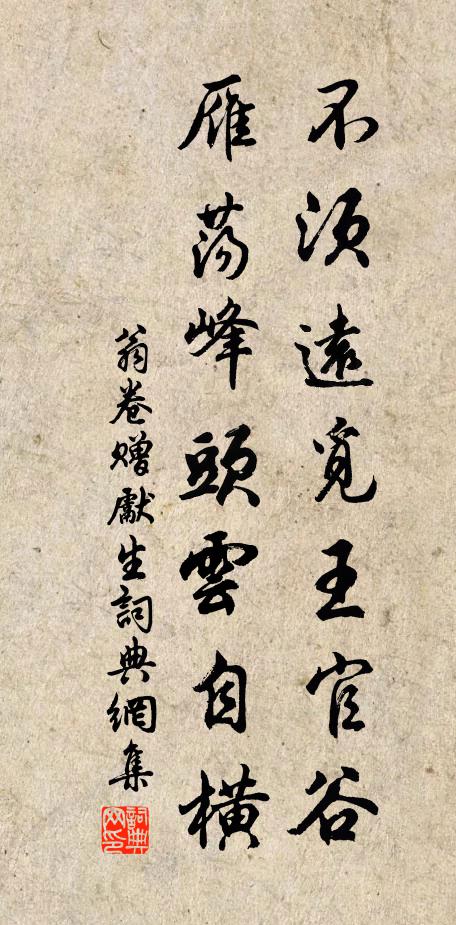 不須遠覓王官谷
雁蕩峰頭雲自橫
翁卷贈獻生詞典網集
詞典
网印